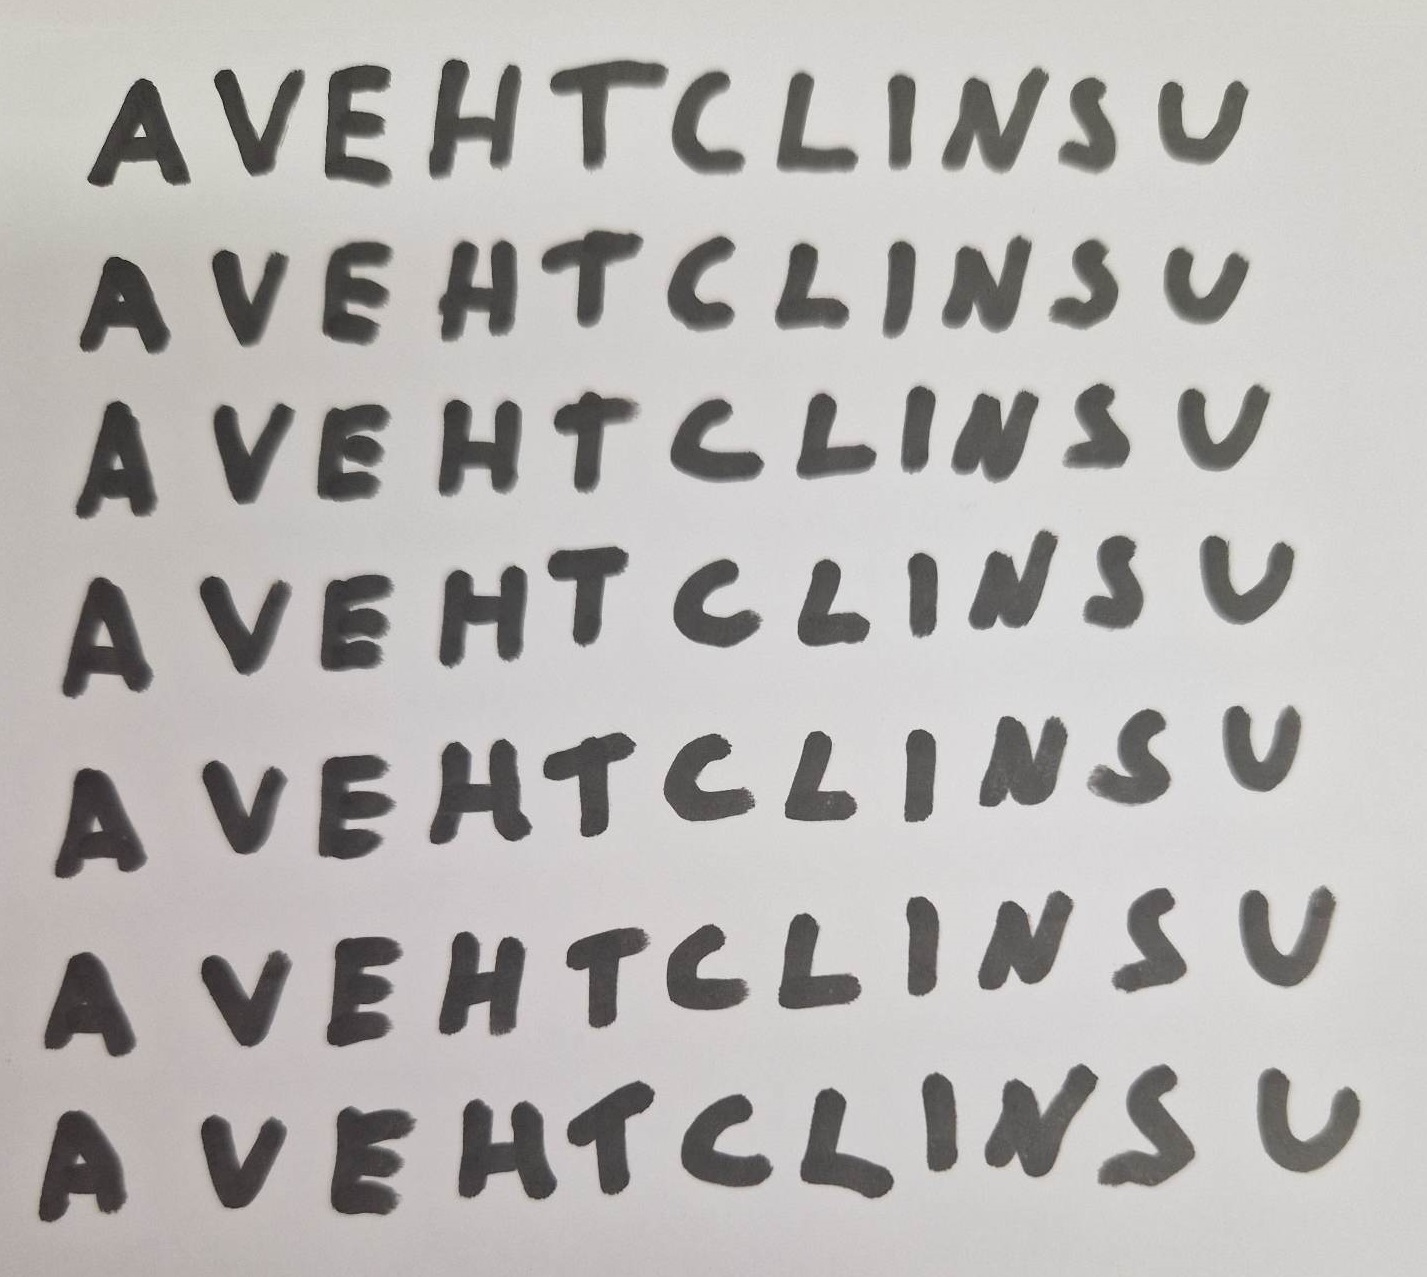 A V E H T C L I N S U
A V E H T C L I N S U
A V E H T C L I N S U
A V E H T C L I N S U
A V E H T C L I N S U
A V E H T C L I N S U
A V E H T C L I N S U